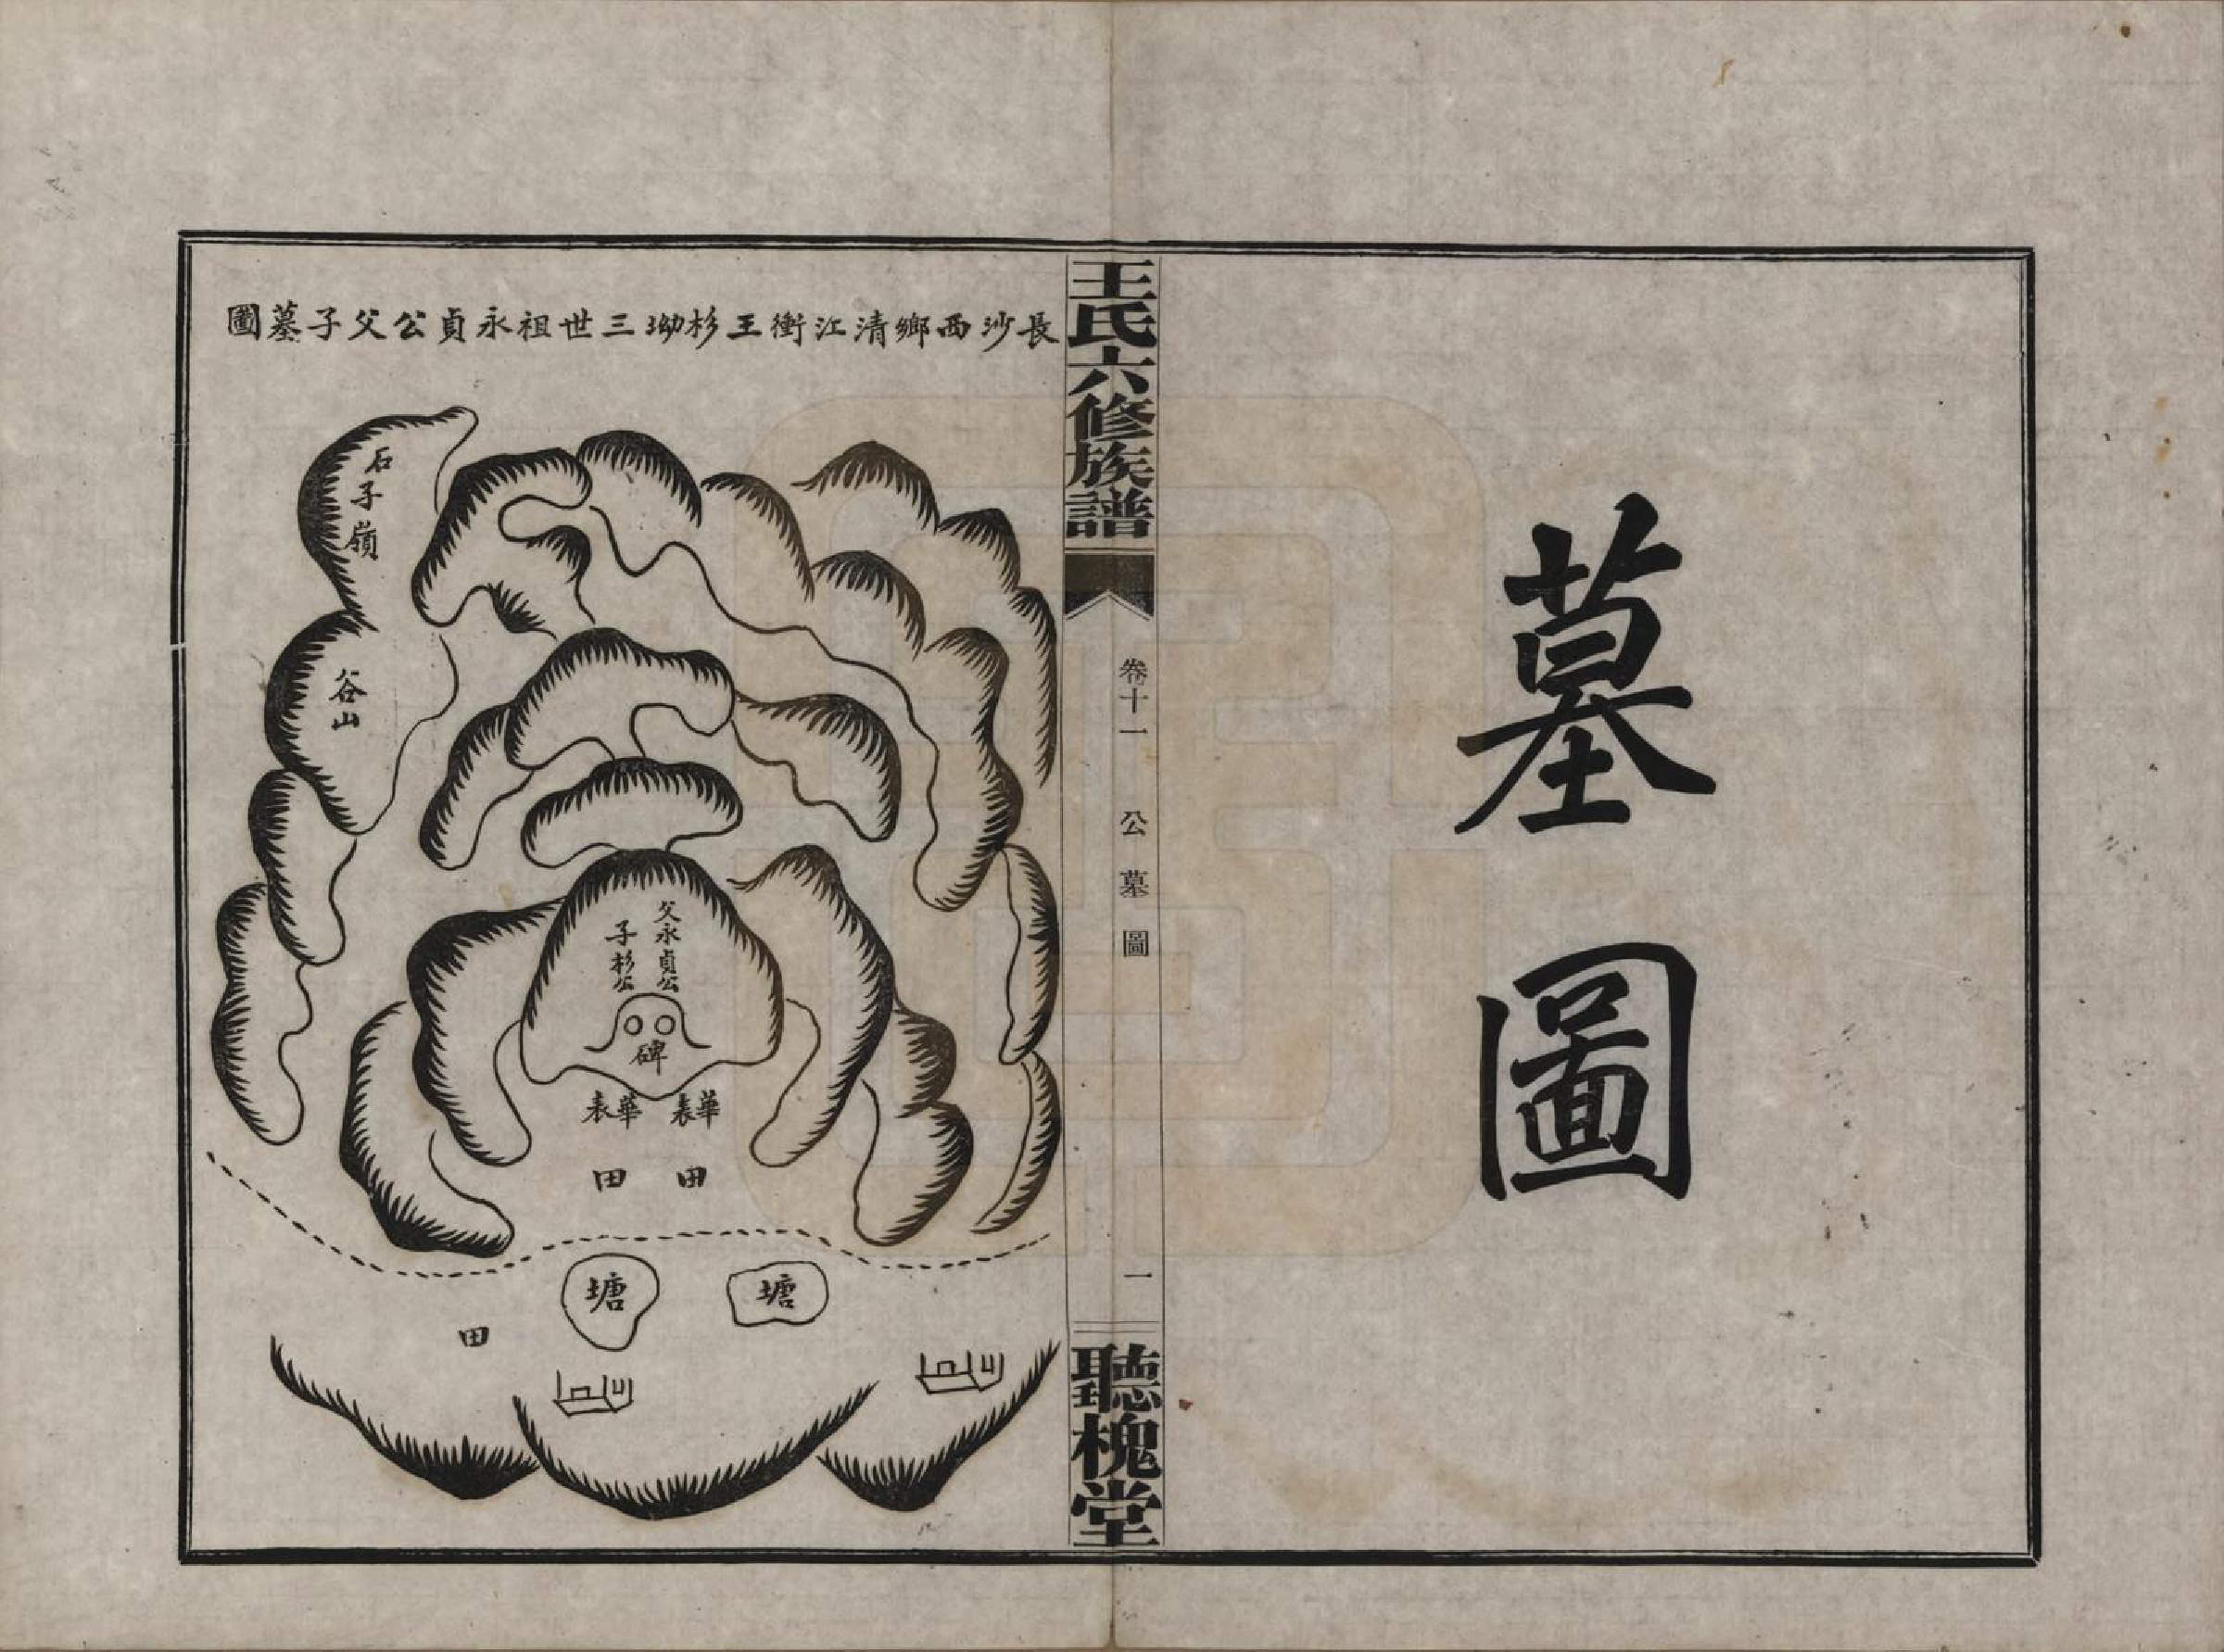 墓圖
王氏六修族譜
卷十一 公墓圖
一
聽槐堂
長沙西鄉清江衝王杉坳三世祖永貞公父子墓圖
石子嶺
谷山
父永貞公
子杉公
碑
華表
華表
田
田
塘
塘
田